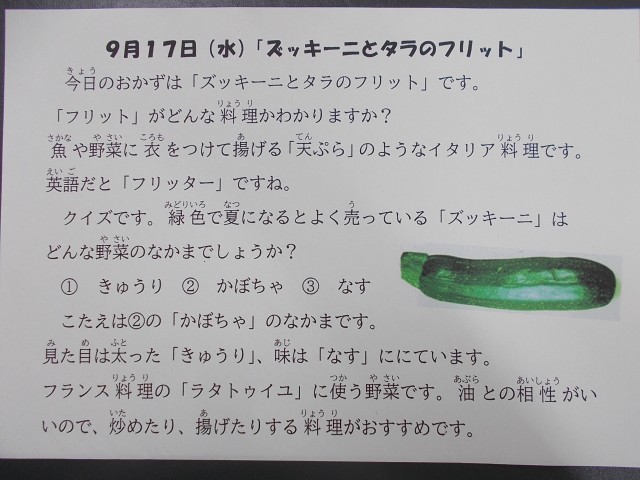 ９月１７日（水）「ズッキーニとタラのフリット」
今日のおかずは「ズッキーニとタラのフリット」です。
「フリット」がどんな料理かわかりますか？
魚や野菜に衣をつけて揚げる「天ぷら」のようなイタリア料理です。
英語だと「フリッター」ですね。
クイズです。緑色で夏になるとよく売っている「ズッキーニ」は
どんな野菜のなかまでしょうか？
① きゅうり ② かぼちゃ ③ なす
こたえは②の「かぼちゃ」のなかまです。
見た目は太った「きゅうり」、味は「なす」ににています。
フランス料理の「ラタトゥイユ」に使う野菜です。油との相性がい
いので、炒めたり、揚げたりする料理がおすすめです。